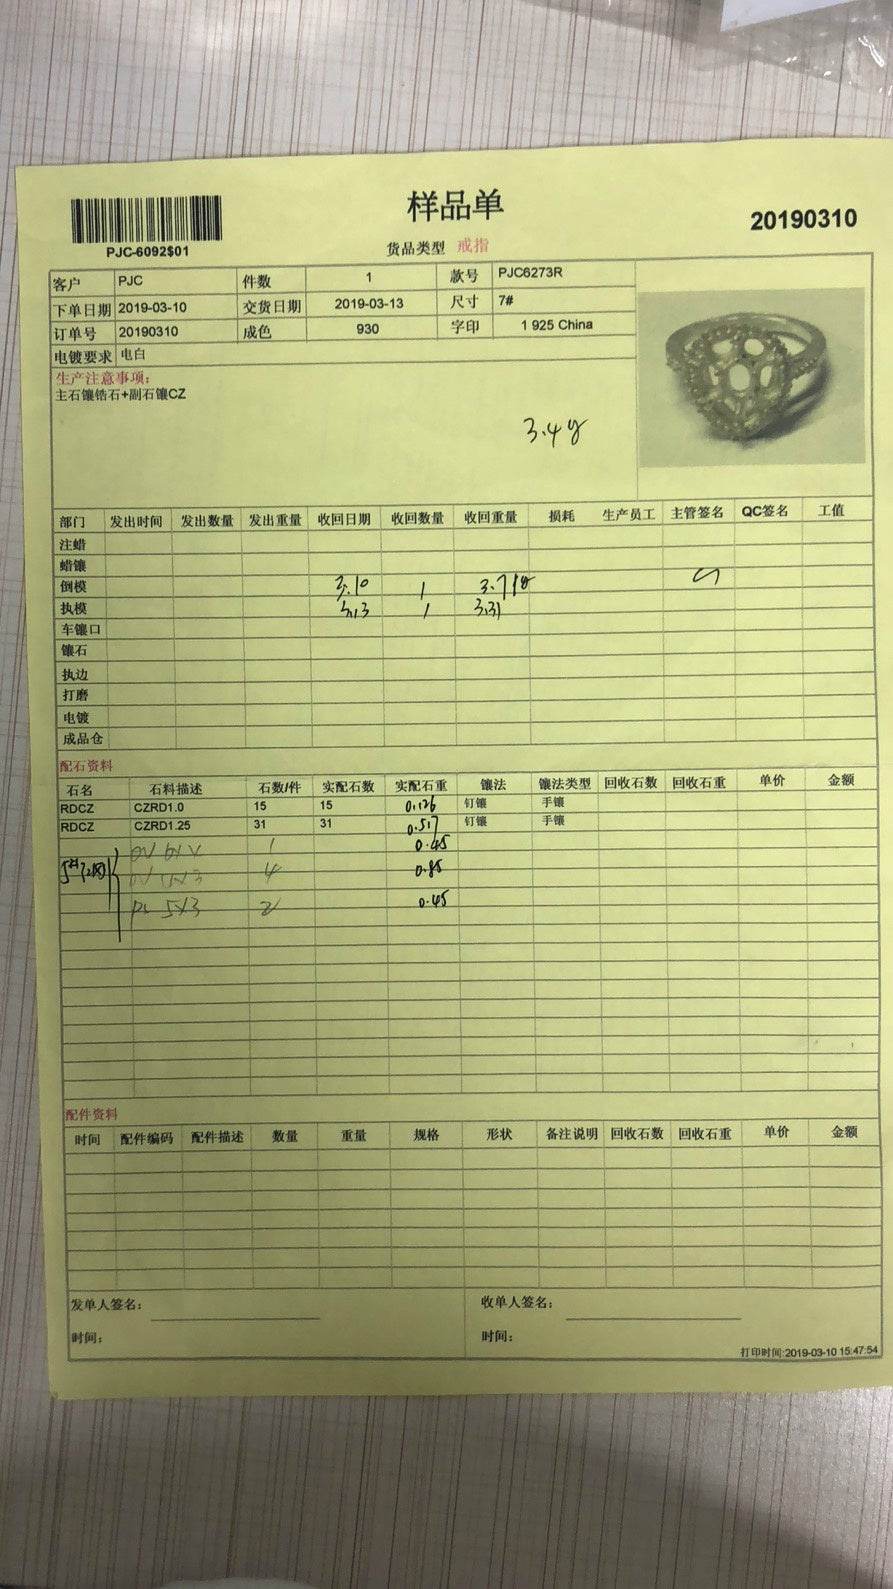 样品单
20190310
PJC-6092$01
货品类型 戒指
客户 PJC 件数 1 款号 PJC6273R
下单日期 2019-03-10 交货日期 2019-03-13 尺寸 7#
订单号 20190310 成色 930 字印 1 925 China
电镀要求 电白
生产注意事项：
主石镶锆石+副石镶CZ
3.4g
部门 发出时间 发出数量 发出重量 收回日期 收回数量 收回重量 损耗 生产员工 主管签名 QC签名 工值
注蜡
蜡镶
倒模 3.10 1 3.71g
执模 3.13 1 3.31
车镶口
镶石
执边
打磨
电镀
成品仓
配石资料
石名 石料描述 石数/件 实配石数 实配石重 镶法 镶法类型 回收石数 回收石重 单价 金额
RDCZ CZRD1.0 15 15 0.126 钉镶 手镶
RDCZ CZRD1.25 31 31 0.517 钉镶 手镶
OV 1 0.45
4 0.85
5X3 2 0.45
配件资料
时间 配件编码 配件描述 数量 重量 规格 形状 备注说明 回收石数 回收石重 单价 金额
发单人签名： 收单人签名：
时间： 时间：
打印时间:2019-03-10 15:47:54